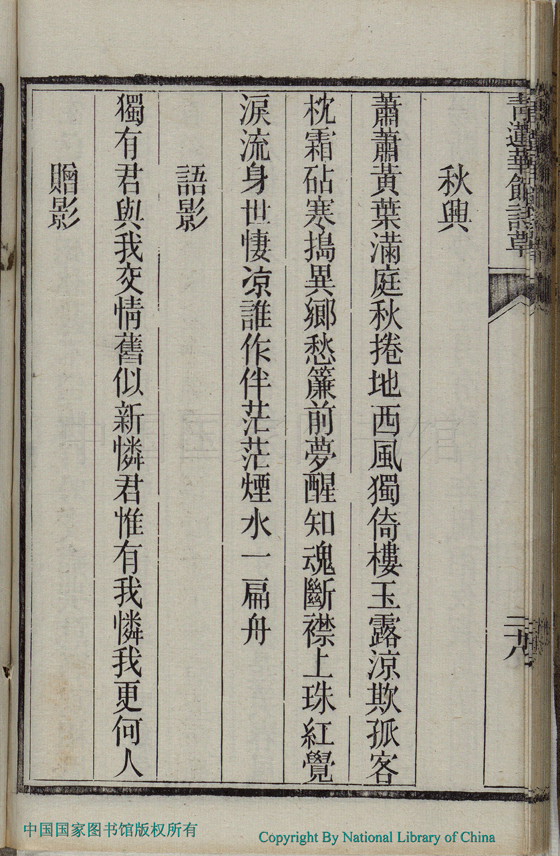 青蓮華館詩草
二十八
秋興
蕭蕭黃葉滿庭秋捲地西風獨倚樓玉露涼欺孤客
枕霜砧寒搗異鄉愁簾前夢醒知魂斷襟上珠紅覺
淚流身世悽凉誰作伴茫茫煙水一扁舟
語影
獨有君與我交情舊似新憐君惟有我憐我更何人
贈影
中国国家图书馆版权所有
Copyright By National Library of China